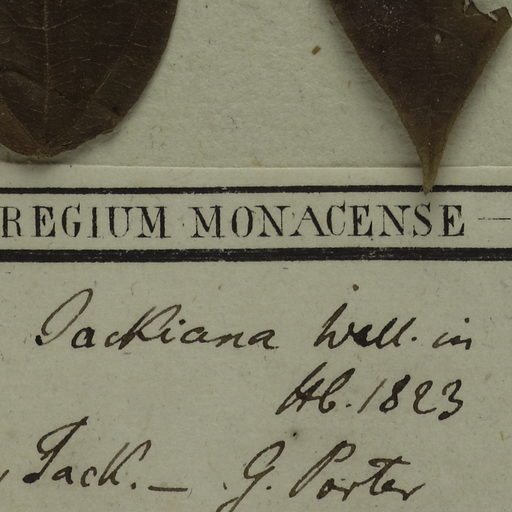 REGIUM MONACENSE —
Jackiana Wall. in
Hb. 1823
, Jack. — . G. Porter